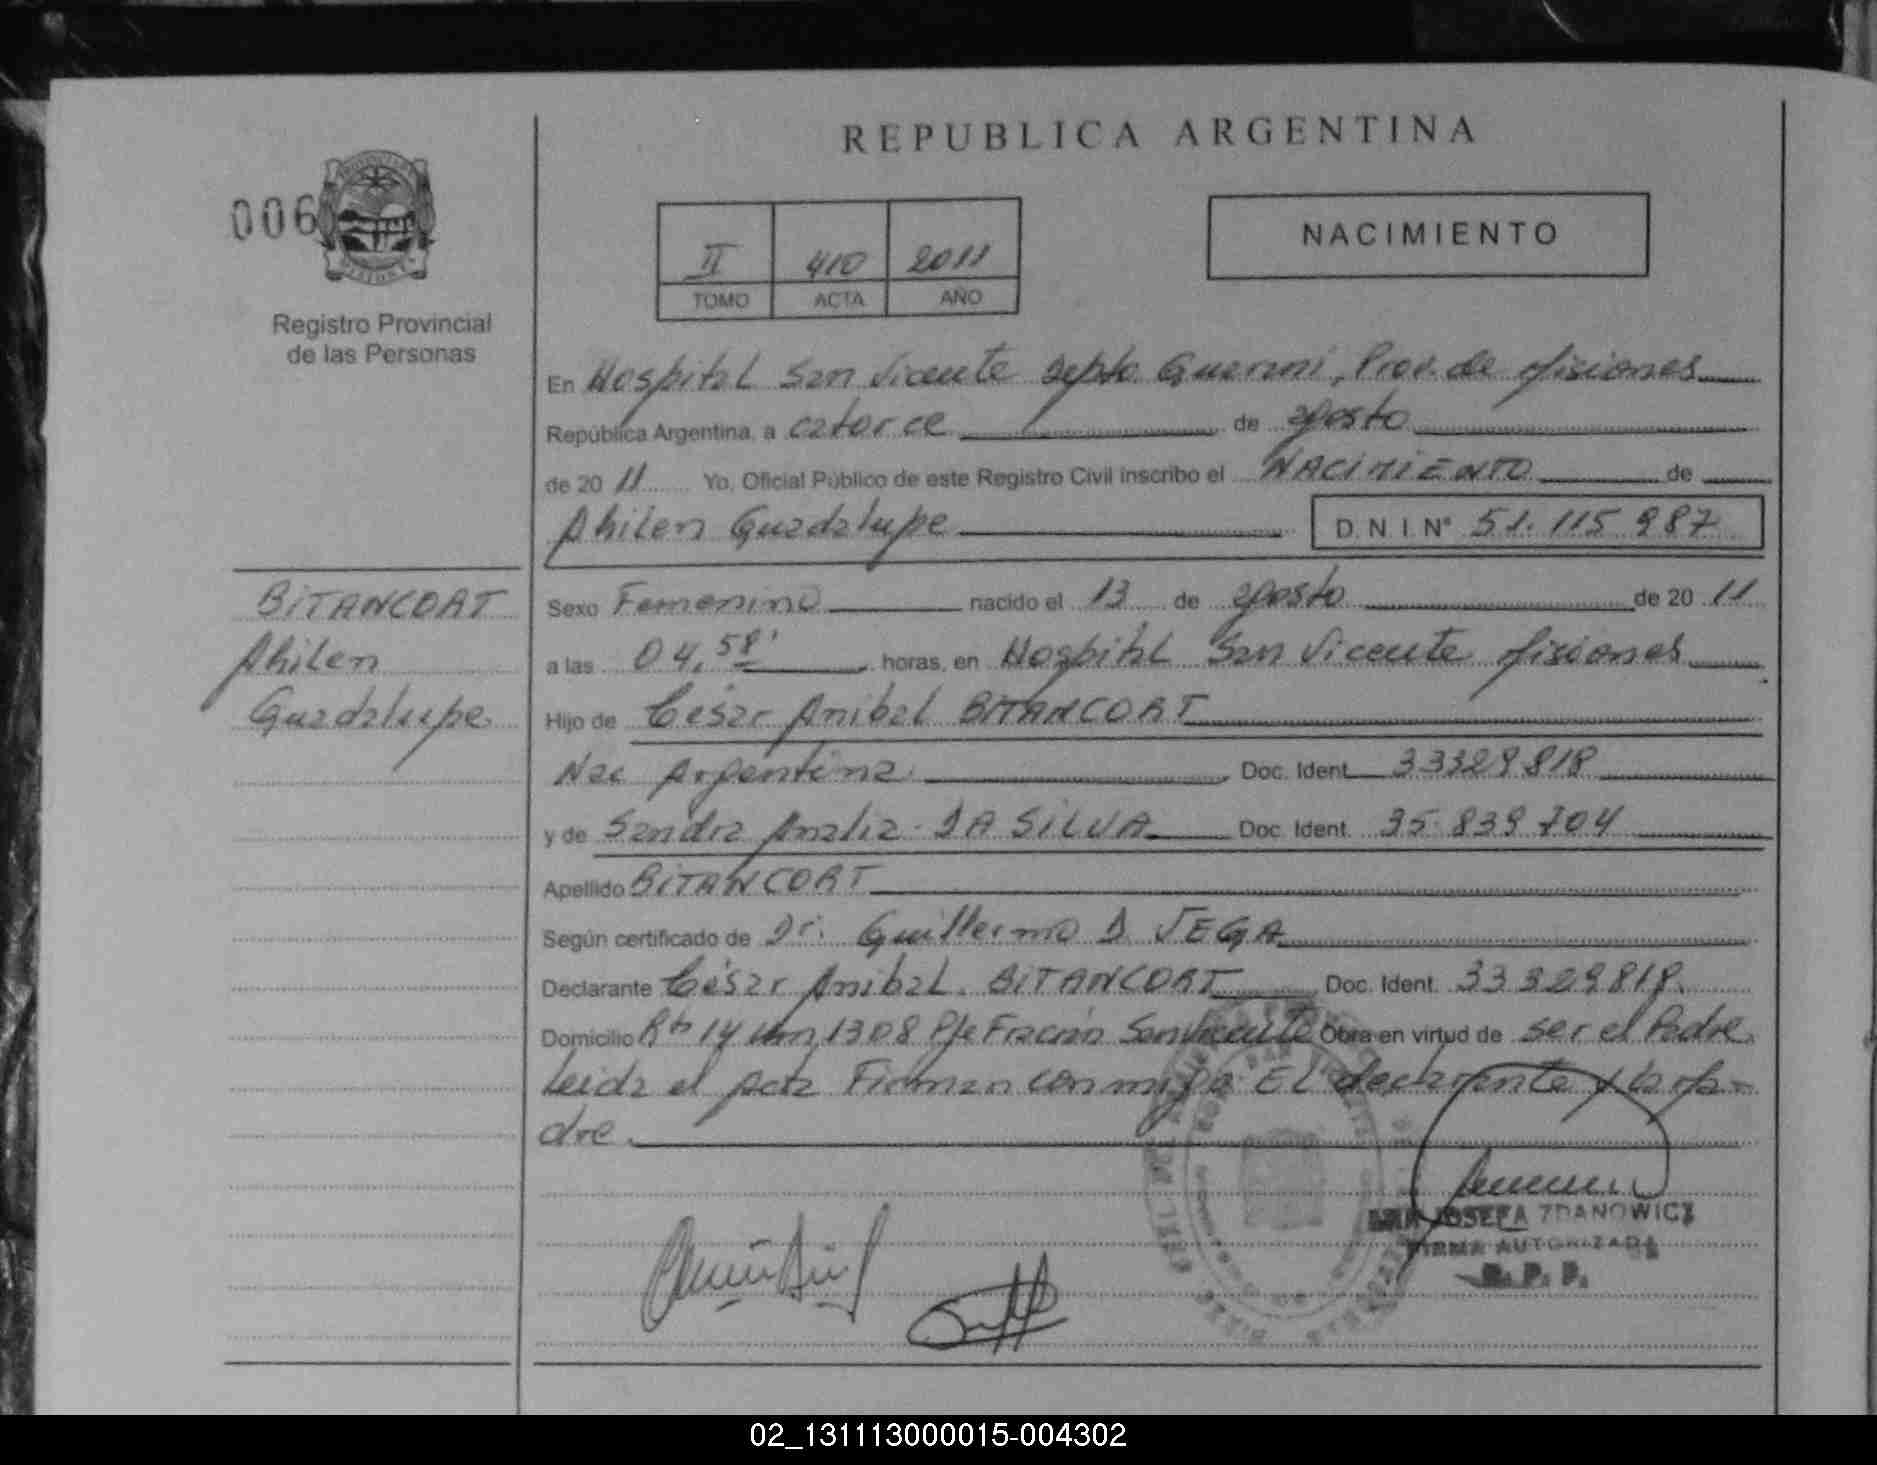 REPUBLICA ARGENTINA
006
II 410 2011
TOMO ACTA AÑO
NACIMIENTO
Registro Provincial
de las Personas
En Hospital San Vicente Depto Guarani, Prov. de Misiones
República Argentina, a catorce de agosto
de 20 11 Yo, Oficial Público de este Registro Civil inscribo el NACIMIENTO de
Ahilen Guadalupe D.N.I.N° 51.115.987
BITANCORT
Ahilen
Guadalupe
Sexo Femenino nacido el 13 de agosto de 20 11
a las 04,58' horas, en Hospital San Vicente Misiones
Hijo de César Anibal BITANCORT
Nac Argentina Doc. Ident. 33329818
y de Sandra Analia DA SILVA Doc. Ident. 35.839.704
Apellido BITANCORT
Según certificado de Dr. Guillermo D VEGA
Declarante César Anibal BITANCORT Doc. Ident. 33329818
Domicilio Rta 14 km 1308 Pje Fracrán San Vicente Obra en virtud de ser el Padre
Leida el Acta Firman conmigo El declarante y la Ma-
dre
JOSEFA ZDANOWICZ
FIRMA AUTORIZADA
R. P. P.
02_131113000015-004302